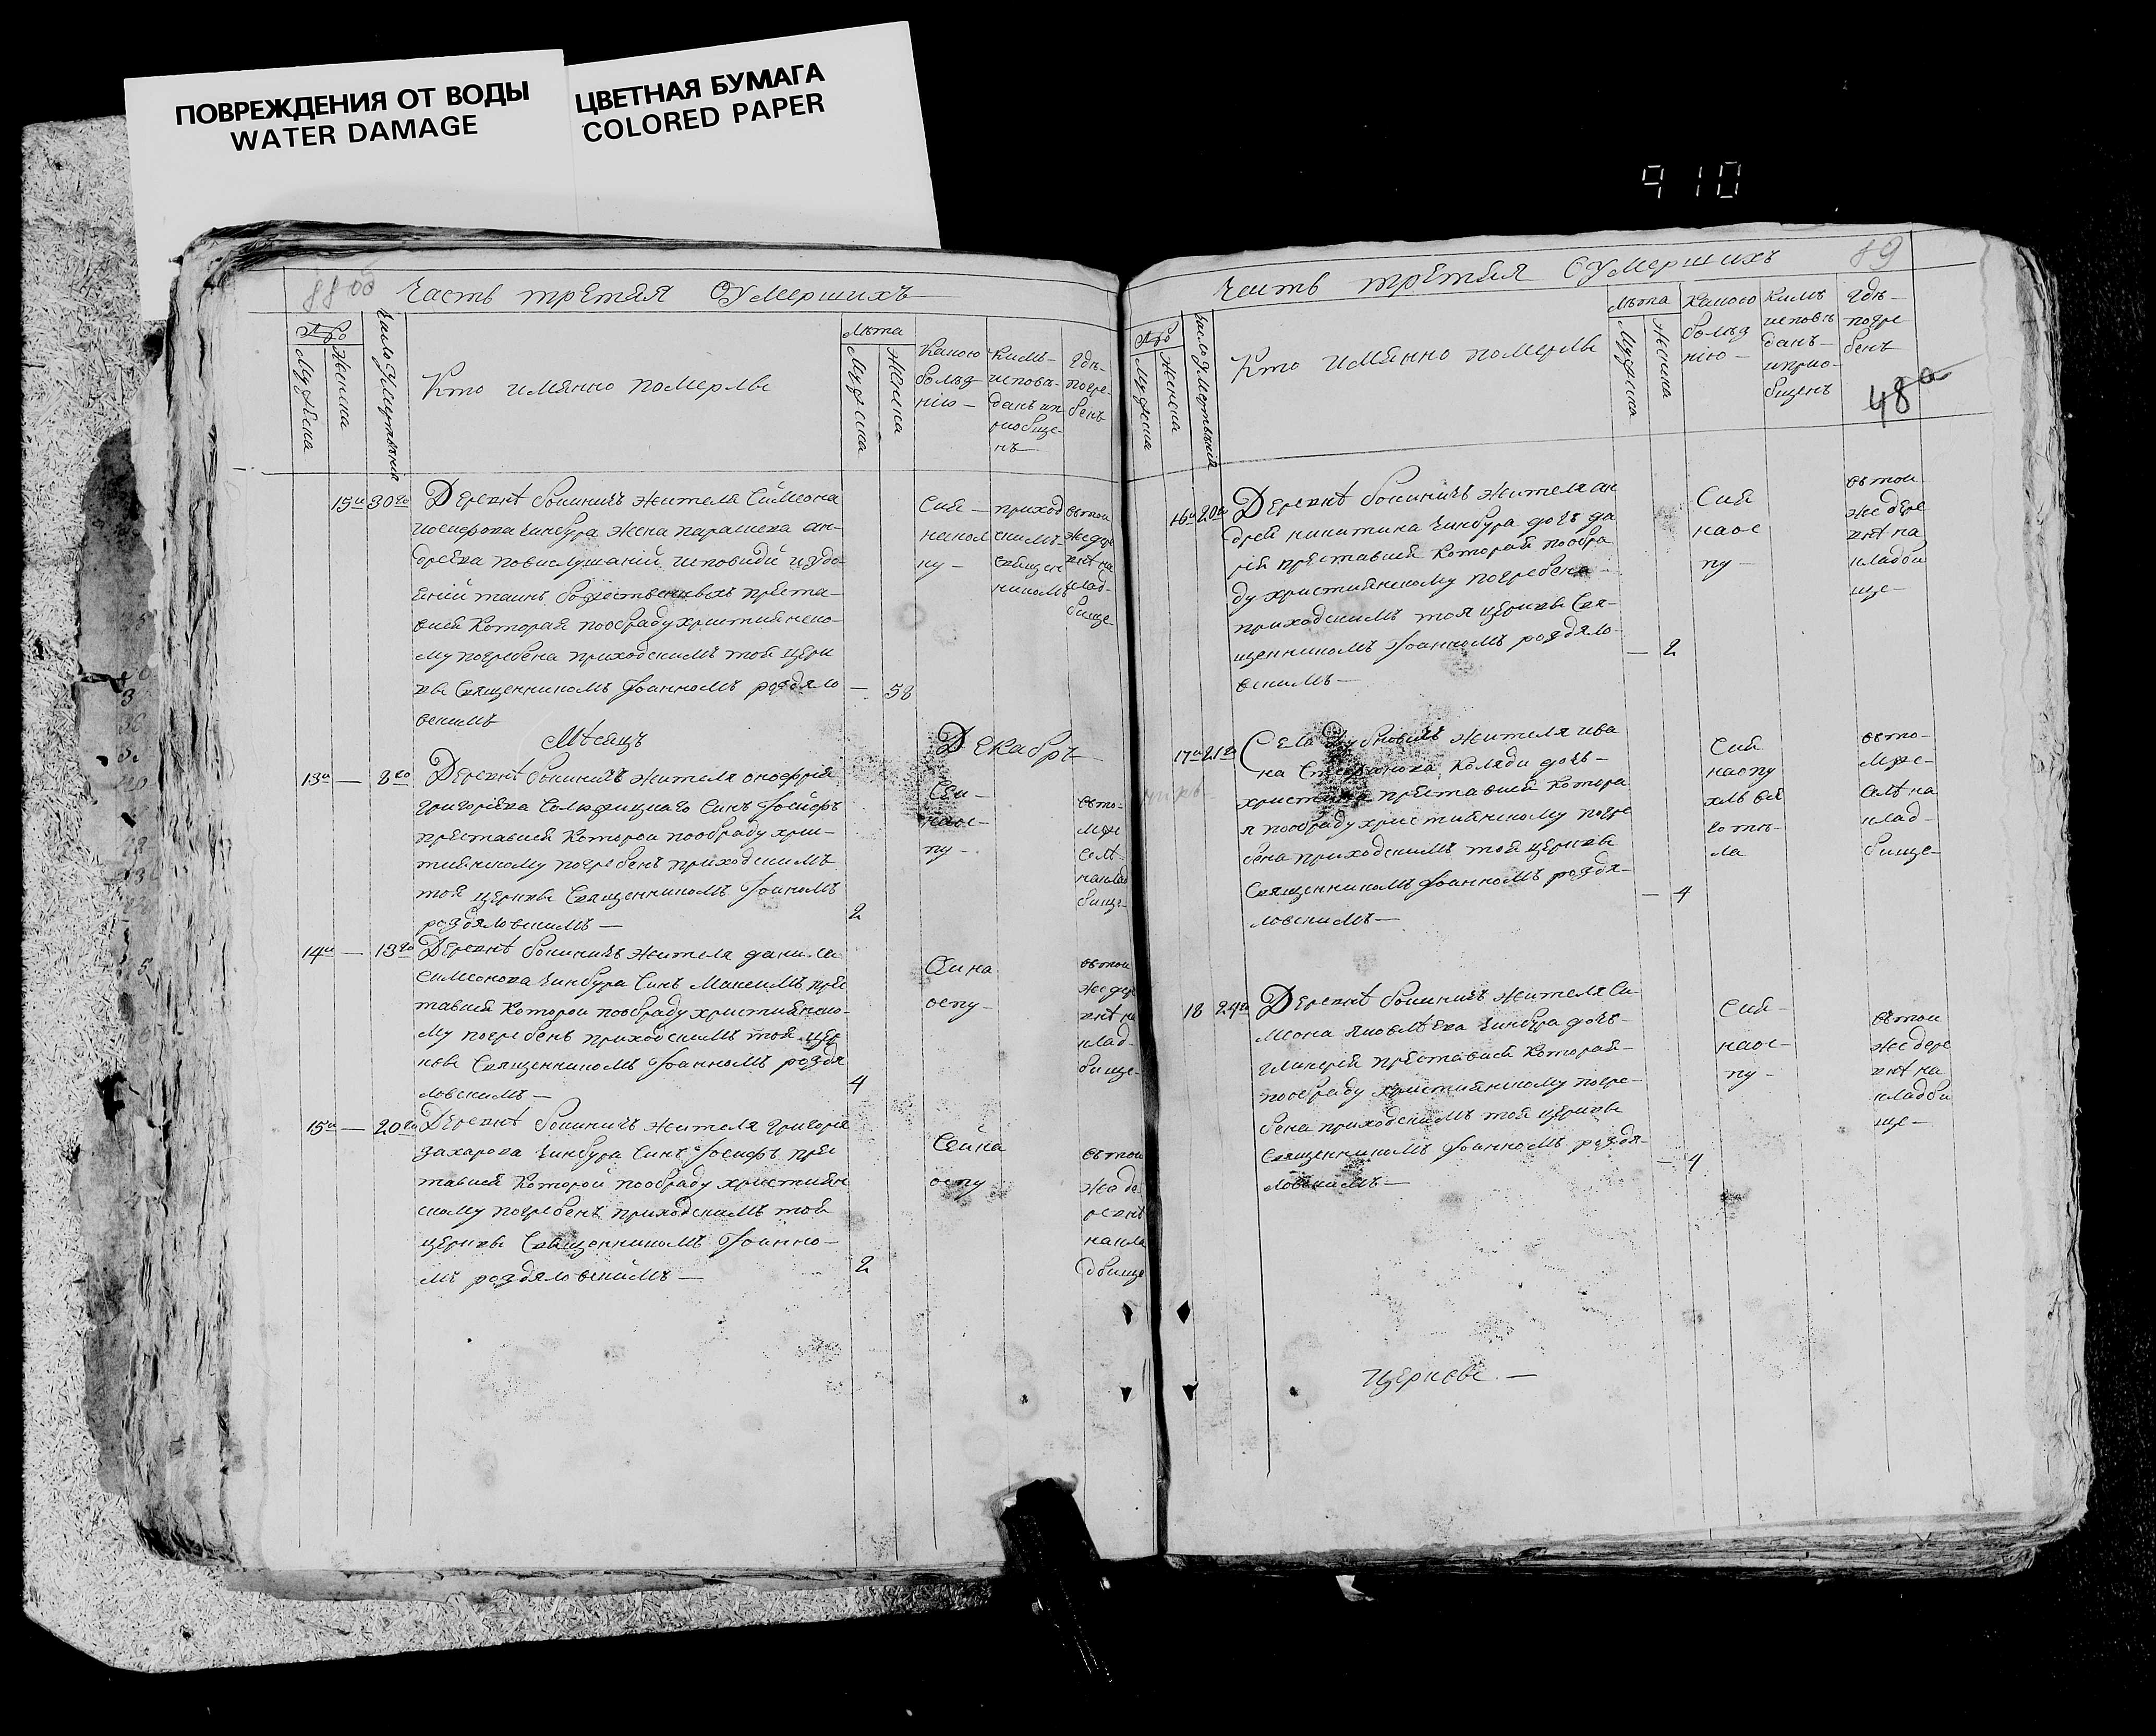 ПОВРЕЖДЕНИЯ ОТ ВОДЫ
WATER DAMAGE
ЦВЕТНАЯ БУМАГА
COLORED PAPER
910
88 об
Часть третяя ОУмершихъ
Число Умертвій
Мужеска
Женска
Кто имянно померлъ
Лѣта
Мужеска
Женска
Какою
болѣз
нію —
Кимъ
исповѣ-
данъ ип
риобще-
нъ
Гдѣ-
погре-
бенъ
15я 30го
Деревнѣ бокиничъ жителя Симеона
иосифова чинбура жена параскева ан-
дреева повислушаній исповиди изудо
еній таинъ божественныхъ преста-
вися которая пообраду християнско-
му погребена приходскимъ той церк
ви Священникомъ Іоанномъ роздяло
вскимъ
— 58
приход
скимъ
священ
никомъ
втой
же дере
внѣ на
клад-
бище
Мѣсяцъ
Декабръ
13й — 8го
Деревнѣ бокиничъ жителя онофрія
григоріева Синъ Іосифъ
преставися которой пообраду хрис-
тиянскому погребенъ приходскимъ
той церкви Священникомъ Іоаномъ
роздяловскимъ —
2
вто-
мже
селѣ
наклад
бище-
14й — 13го
Деревнѣ бокиничъ жителя данила
Симеонова чинбура Синъ Максимъ прес
тавися которой пообраду християнско-
му погребенъ приходскимъ той цер
кви Священникомъ Іоанномъ роздя
ловскимъ —
4
оспу-
втой
же дере
внѣ на
клад-
бище-
15й — 20го
Деревнѣ бокиничъ жителя григорія
захарова чинбура Синъ Іосифъ прес
тавися которой пообраду християн
скому погребенъ приходскимъ той
церкви Священникомъ Іоанно-
мъ роздяловскимъ —
2
оспу
втой
же де
ревнѣ
накла
дбище
Часть третяя ОУмершихъ
89
48а
Число Умертвій
Мужеска
Женска
Кто имянно померлъ
Лѣта
Мужеска
Женска
Какою
болѣз
нію —
Кимъ
исповѣ
данъ-
иприо-
бщенъ
Гдѣ-
погре
бенъ
16я 20го
Деревнѣ бокиничъ жителя ан
дрей никитина чинбура дочъ да
рія преставися которая пообра
ду християнскому погребена
приходскимъ тоя церкви Свя-
щенникомъ Іоанномъ роздяло
вскимъ —
— 2
наос
пу —
втой
же дере
внѣ на
кладби
ще-
17я 21го
Села жителя ива
на Стефанова Коляди дочъ-
христина преставися котора
я пообраду християнскому погре
бена приходскимъ той церкви
Священникомъ Іоанномъ роздя-
ловскимъ —
— 4
вто-
мже-
селѣ на
клад-
бище-
18 24го
Деревнѣ бокиничъ жителя Си
меона чинбура дочъ-
гликерія преставися которая-
пообраду християнскому погре-
бена приходскимъ той церкви
Священникомъ Іоанномъ роздя-
ловскимъ —
— 4
наос-
пу —
втой
же дере
внѣ на
кладби
ще —
церкви. —